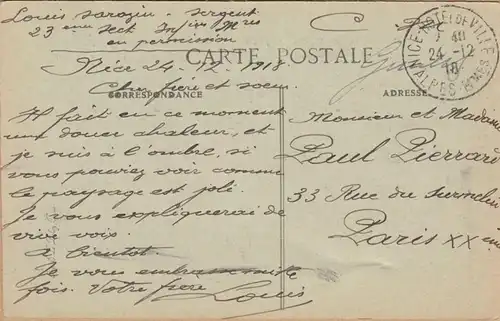 Louis Sarazin, Sergent
23ème Sect Infiers Mres
en permission
CARTE POSTALE
NICE-HOTEL DE VILLE
24-12
18
ALPES-MMES
Nice 24-12-1918
Cher frère et soeur.
CORRESPONDANCE
ADRESSE
Il fait en ce moment
une doucer chaleur, et
je suis à l'ombre, si
vous pouviez voir comme
le paysage est joli.
Je vous expliquerai de
vive vois.
a bientot.
Je vous embrasse mille
fois. Votre frère
Louis
Monsieur et Madame
Paul Pierrard
33 Rue du Surmelin
Paris XX